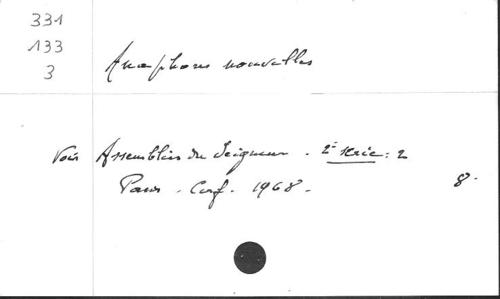 331
133
3
Anaphores nouvelles
Voir Assemblées du Seigneur. 2e série : 2
Paris. Cerf. 1968.
8.